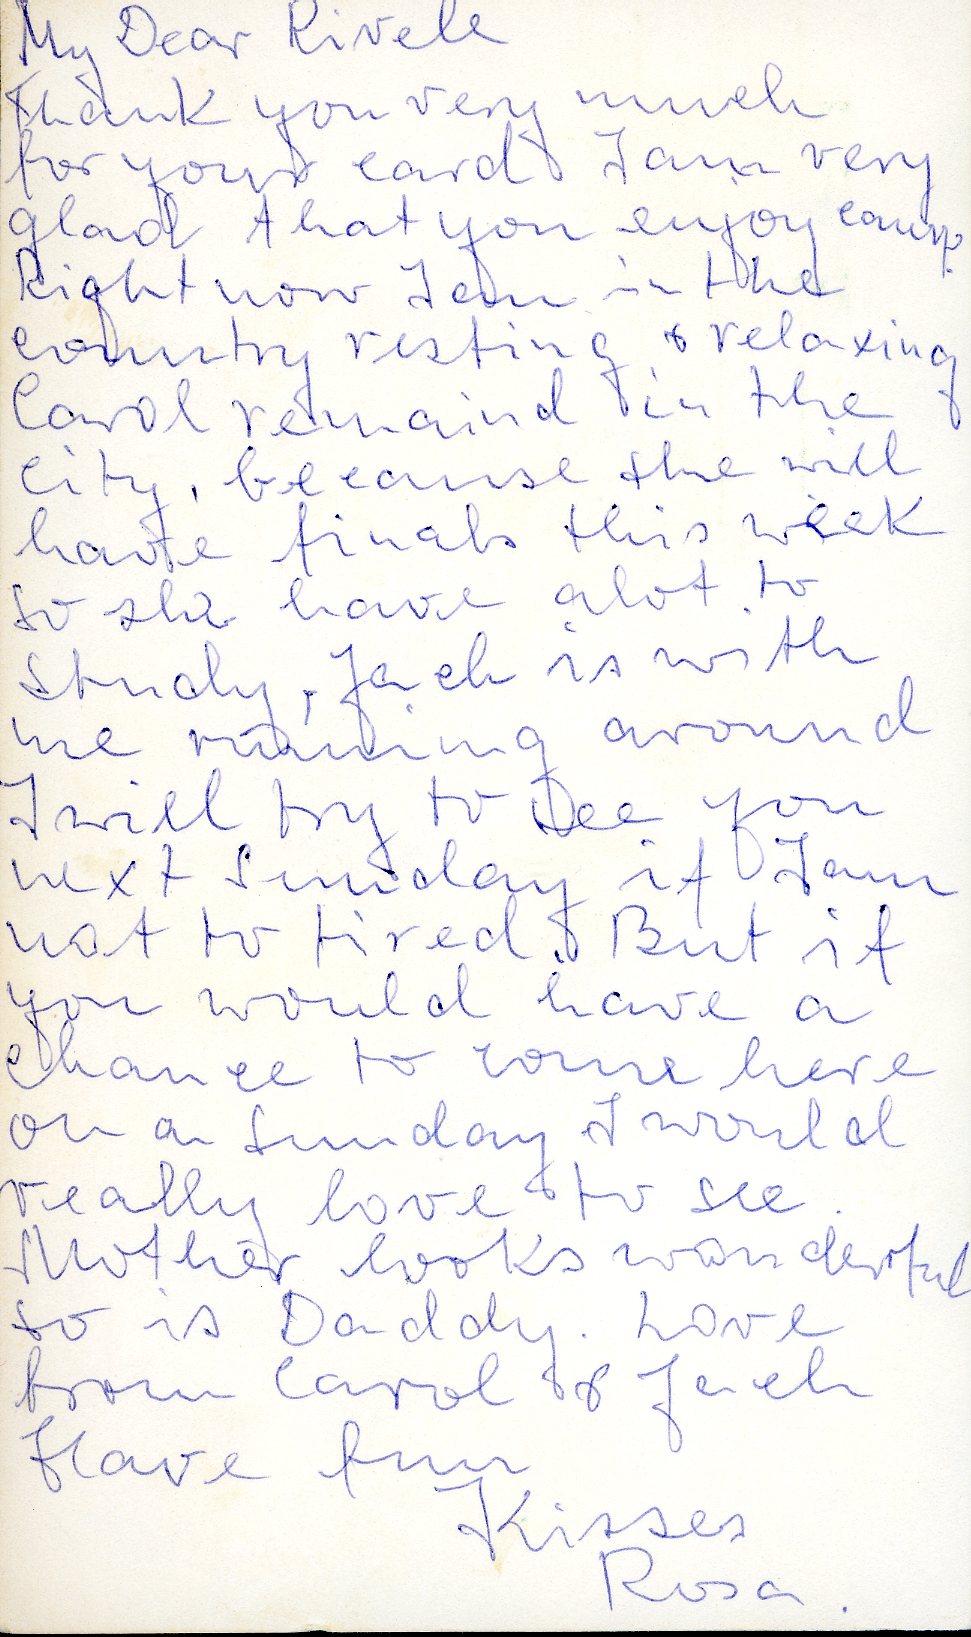 My Dear Rivele
Thank you very much
for your card. I am very
glad that you enjoy camp.
Right now I am in the
country resting & relaxing
Carol remaind in the
city, because she will
have finals this week
so she have alot to
study, Jack is with
me running around
I will try to see you
next Sunday if I am
not to tired. But if
you would have a
chance to come here
on a Sunday I would
really love to see.
Mother looks wonderful
so is Daddy. Love
from Carol & Jack
Have fun
Kisses
Rosa.